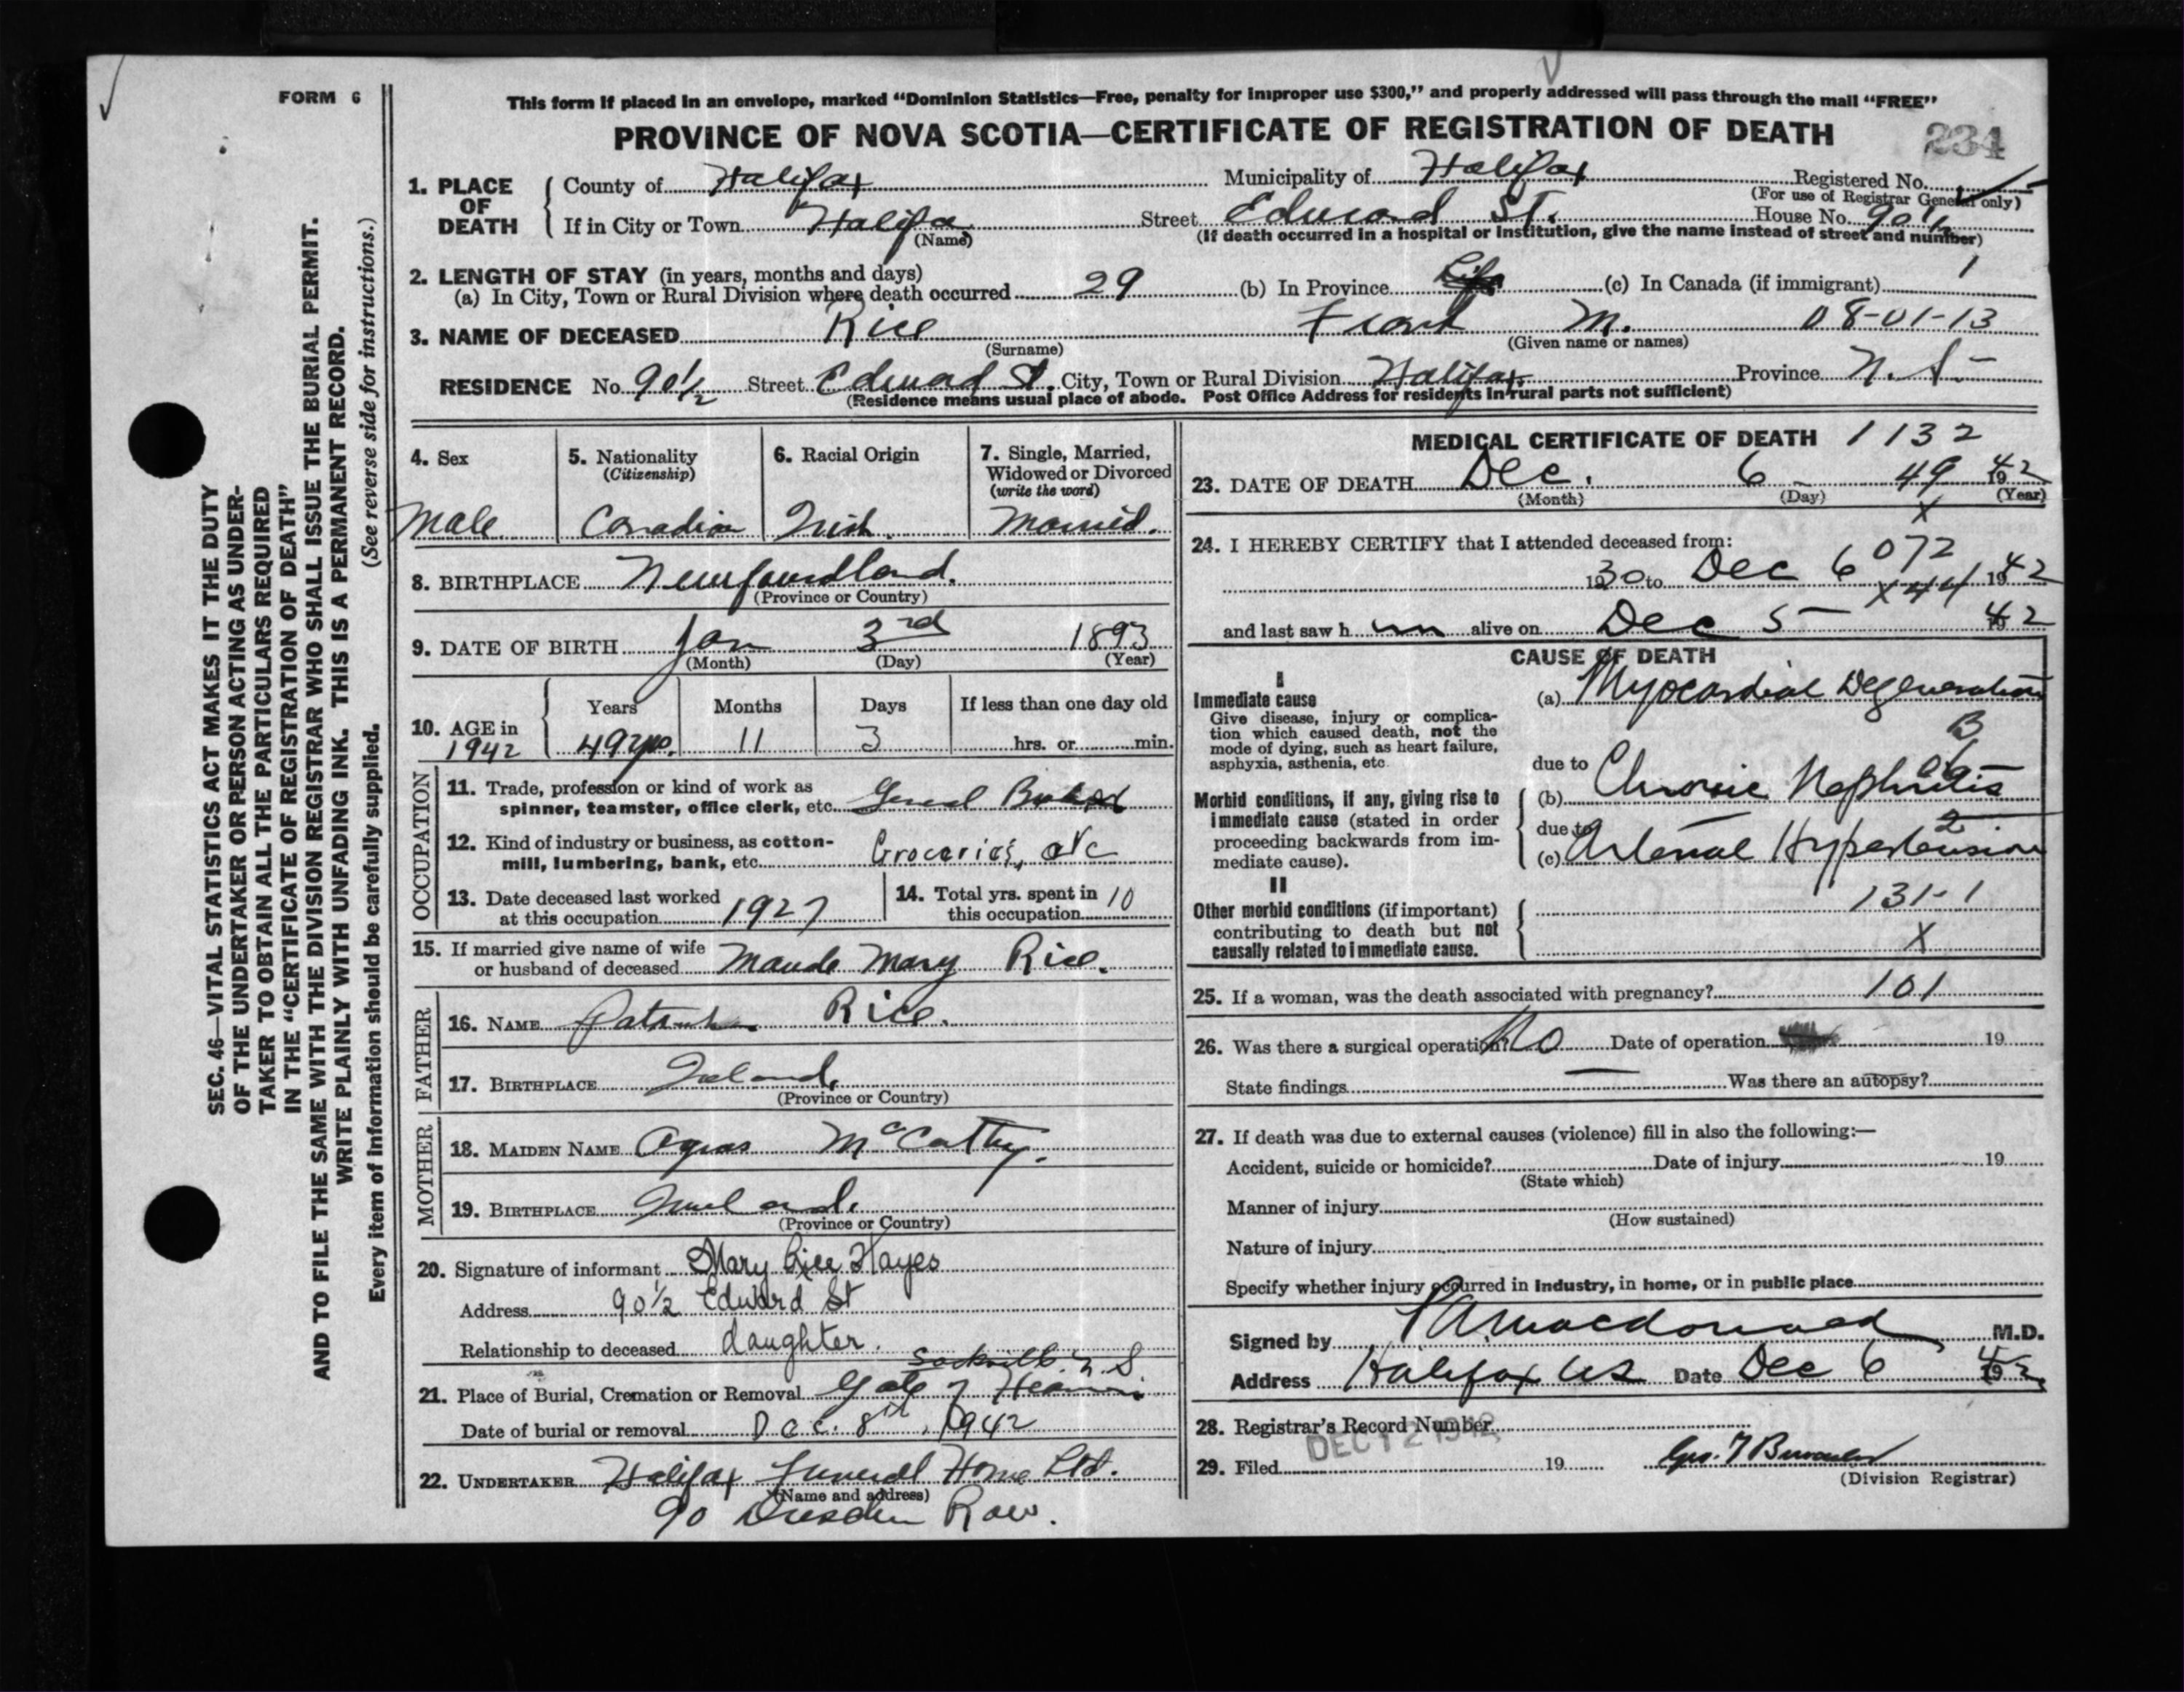 FORM 6
This form if placed in an envelope, marked “Dominion Statistics—Free, penalty for improper use $300,” and properly addressed will pass through the mail “FREE”
PROVINCE OF NOVA SCOTIA—CERTIFICATE OF REGISTRATION OF DEATH
234
1. PLACE OF DEATH
County of Halifax Municipality of Halifax Registered No.
(For use of Registrar General only)
If in City or Town Halifax Street Edward St. House No. 90½
(Name) (If death occurred in a hospital or institution, give the name instead of street and number)
2. LENGTH OF STAY (in years, months and days)
(a) In City, Town or Rural Division where death occurred 29 (b) In Province (c) In Canada (if immigrant)
3. NAME OF DECEASED Rice Frank M. 08-01-13
(Surname) (Given name or names)
RESIDENCE No. 90½ Street Edward St. City, Town or Rural Division Halifax Province N.S.
(Residence means usual place of abode. Post Office Address for residents in rural parts not sufficient)
SEC. 46—VITAL STATISTICS ACT MAKES IT THE DUTY
OF THE UNDERTAKER OR PERSON ACTING AS UNDER-
TAKER TO OBTAIN ALL THE PARTICULARS REQUIRED
IN THE “CERTIFICATE OF REGISTRATION OF DEATH”
AND TO FILE THE SAME WITH THE DIVISION REGISTRAR WHO SHALL ISSUE THE BURIAL PERMIT.
WRITE PLAINLY WITH UNFADING INK. THIS IS A PERMANENT RECORD.
Every item of information should be carefully supplied. (See reverse side for instructions.)
4. Sex
Male
5. Nationality
(Citizenship)
Canadian
6. Racial Origin
Irish
7. Single, Married,
Widowed or Divorced
(write the word)
Married.
8. BIRTHPLACE Newfoundland.
(Province or Country)
9. DATE OF BIRTH Jan 3rd 1893
(Month) (Day) (Year)
10. AGE in 1942
Years Months Days If less than one day old
49 yrs. 11 3 hrs. or min.
OCCUPATION
11. Trade, profession or kind of work as
spinner, teamster, office clerk, etc. General
12. Kind of industry or business, as cotton-
mill, lumbering, bank, etc. Groceries, etc
13. Date deceased last worked
at this occupation 1927
14. Total yrs. spent in
this occupation 10
15. If married give name of wife
or husband of deceased Maude Mary Rice.
FATHER
16. NAME Patrick Rice.
17. BIRTHPLACE Ireland.
(Province or Country)
MOTHER
18. MAIDEN NAME Agnes McCarthy.
19. BIRTHPLACE
(Province or Country)
20. Signature of informant Mary Rice Hayes
Address 90½ Edward St
Relationship to deceased daughter.
Sackville N S
21. Place of Burial, Cremation or Removal Gate of Heaven
Date of burial or removal Dec. 8th, 1942
22. UNDERTAKER Halifax Funeral Home Ltd.
(Name and address)
90 Dresden Row.
MEDICAL CERTIFICATE OF DEATH 1132
23. DATE OF DEATH Dec. 6 49 1942
(Month) (Day) (Year)
X
24. I HEREBY CERTIFY that I attended deceased from:
072
1930 to Dec 6 1942
X44
and last saw h im alive on Dec 5 1942
CAUSE OF DEATH
I
Immediate cause
Give disease, injury or complica-
tion which caused death, not the
mode of dying, such as heart failure,
asphyxia, asthenia, etc.
(a) Myocardial Degeneration
B
due to
Morbid conditions, if any, giving rise to
immediate cause (stated in order
proceeding backwards from im-
mediate cause).
(b) Chronic Nephritis
due to
2
(c) Arterial Hypertension
II
Other morbid conditions (if important)
contributing to death but not
causally related to immediate cause.
131-1
X
25. If a woman, was the death associated with pregnancy? 101
26. Was there a surgical operation? No Date of operation 19
State findings — Was there an autopsy?
27. If death was due to external causes (violence) fill in also the following:—
Accident, suicide or homicide? Date of injury 19
(State which)
Manner of injury
(How sustained)
Nature of injury
Specify whether injury occurred in industry, in home, or in public place
Signed by Macdonald M.D.
Address Halifax NS Date Dec 6 1942
28. Registrar's Record Number
DEC 12 1942
29. Filed 19
(Division Registrar)